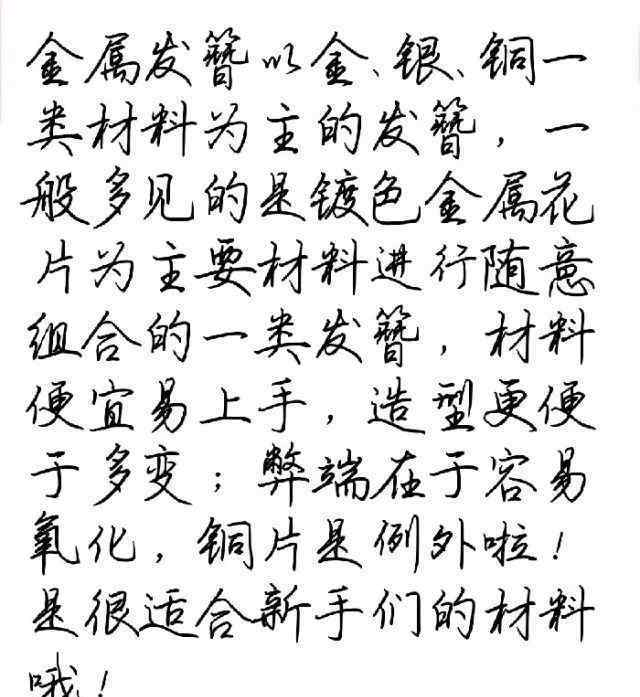 金属发簪以金、银、铜一
类材料为主的发簪，一
般多见的是镀色金属花
片为主要材料进行随意
组合的一类发簪，材料
便宜易上手，造型更便
于多变；弊端在于容易
氧化，铜片是例外啦！
是很适合新手们的材料
哦！